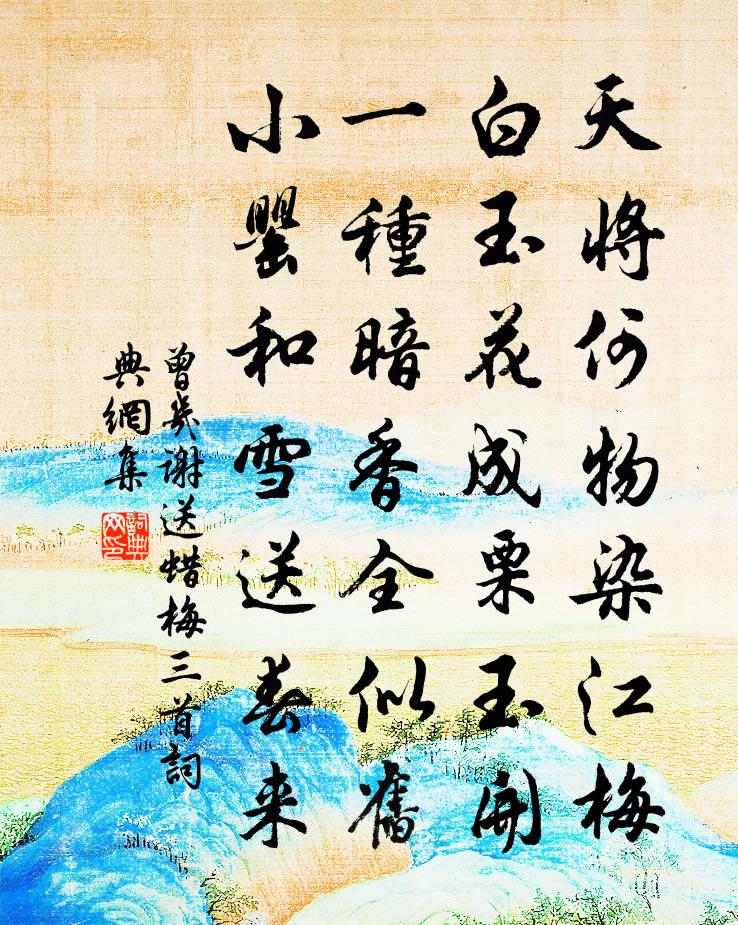 天將何物染江梅
白玉花成栗玉開
一種暗香全似舊
小罌和雪送春来
曾幾谢送蜡梅三首詞
典網集
詞典网印